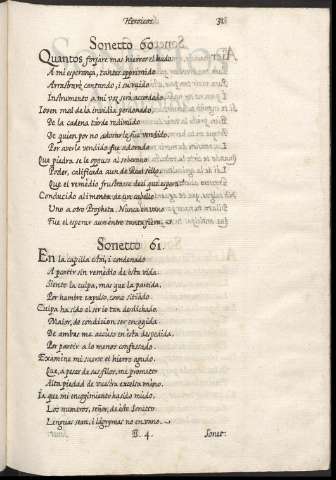 Heroicos. 31
Sonetto 60.
Quantos forjare mas hierros el hado
A mi esperança, tantos oprimido
Arrastraré cantando, i su ruido
Instrumento a mi voz será acordado.
Joven mal de la invidia perdonado,
De la cadena tarde redimido
De quien por no adorarle fue vendido,
Por averle vendido fue adorado.
Que piedra se le opuso al soberano
Poder, calificada aun de Real sello,
Que el remedio frustrasse del que espera?
Conducido alimenta, de un cabello
Uno a otro Propheta. Nunca en vano
Fue el esperar, aun entre tanta fiera.
Sonetto 61.
En la capilla estoi, i condenado
A partir sin remedio de esta vida:
Siento la causa, aun mas que la partida,
Por hambre expulso, como sitiado.
Culpa ha sido el ser io tan desdichado,
Maior, de condicion ser encogida.
De ambas me accuso en esta despedida,
Por partir a lo menos confessado.
Examine mi suerte el hierro agudo,
Que, a pesar de sus filos, me prometo
Alta piedad de vuestra excelsa mano.
Ia que mi encogimiento ha sido mudo,
Los numeros, señor, de este Soneto
Lenguas sean, i lagrymas no en vano.
II. 4. Sonet: